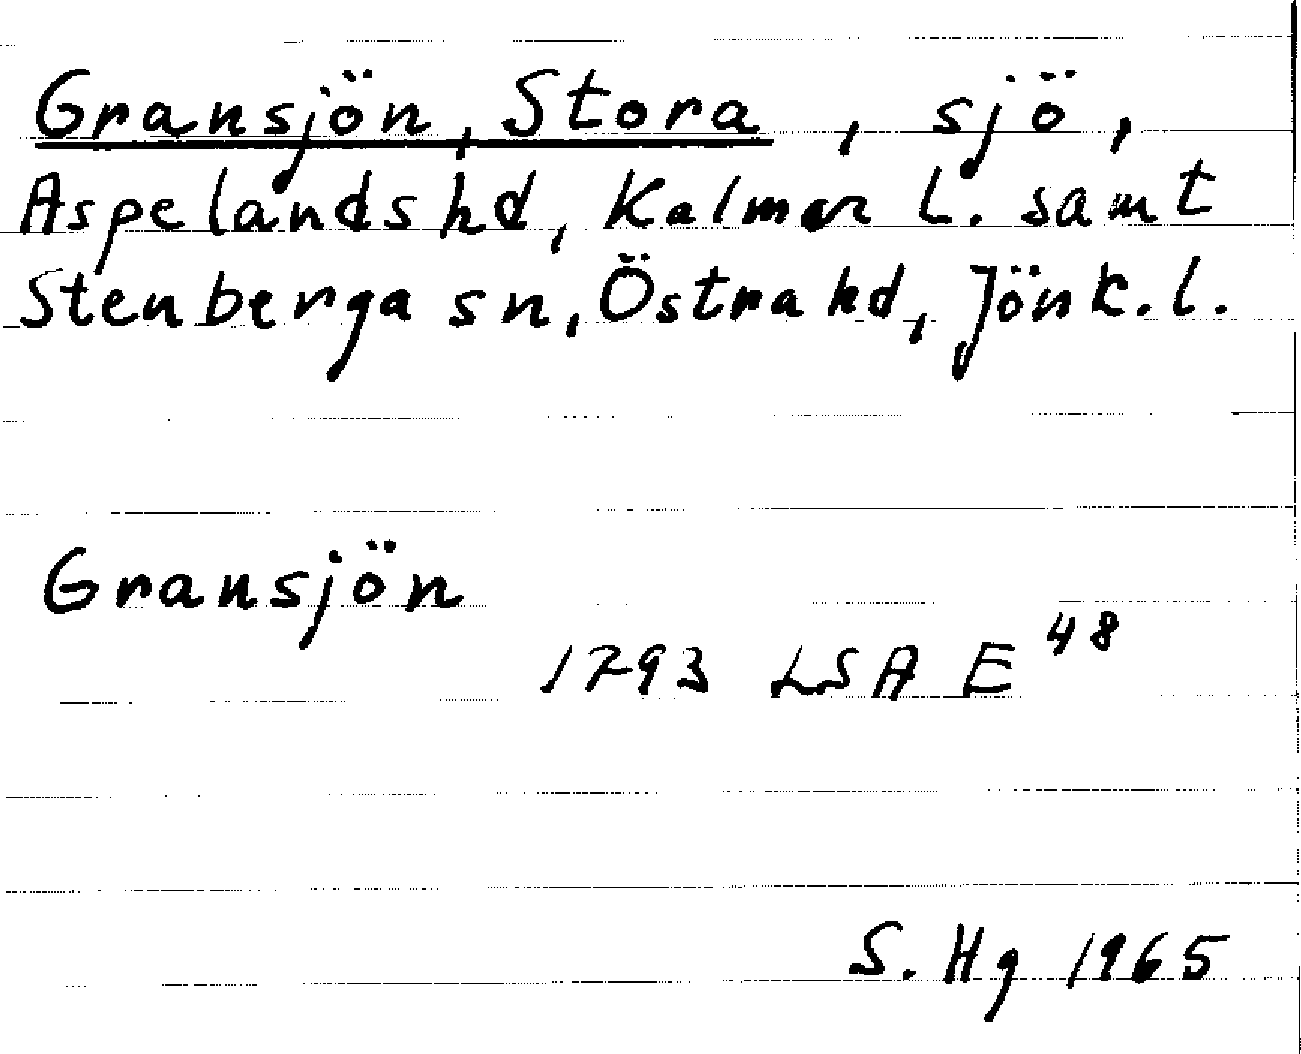 Gransjön, Stora, sjö,
Aspelands hd, Kalmar L. samt
Stenberga sn, Östra hd, Jönk. l.
Gransjön
1793 LSA E 48
S. Hg 1965